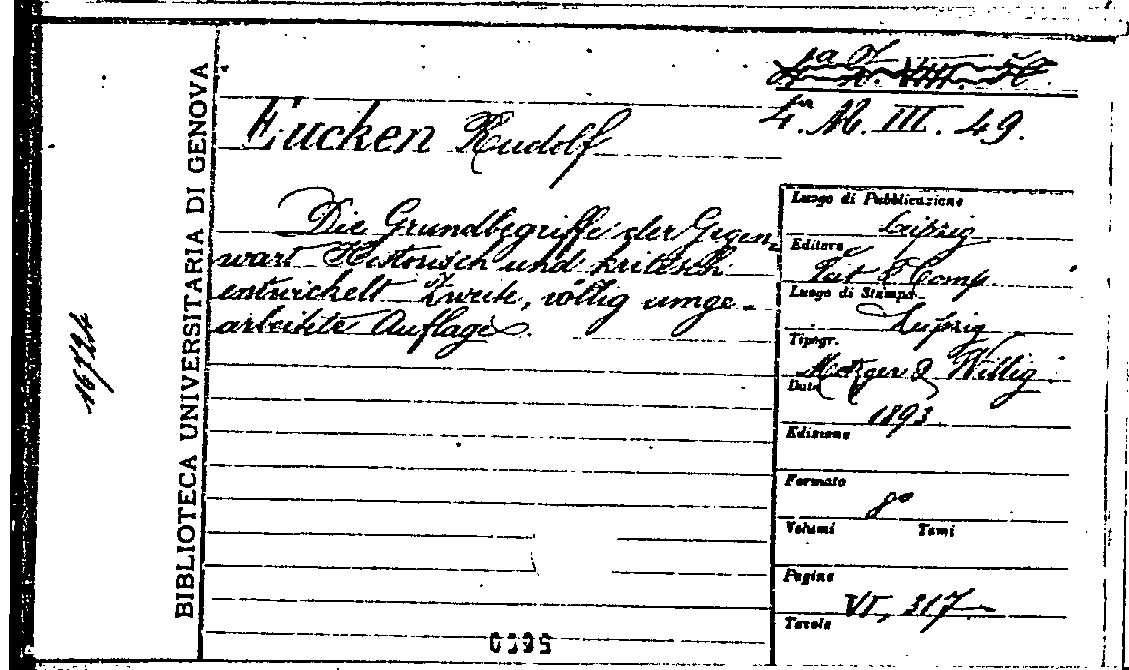 BIBLIOTECA UNIVERSITARIA DI GENOVA
4.a M. III. 49.
Eucken Rudolf
Die Grundbegriffe der Gegen-
wart Historisch und kritisch
entwickelt Zweite, völlig umge-
arbeitete Auflage.
Luogo di Pubblicazione
Leipzig
Editore
Veit & Comp.
Luogo di Stampa
Leipzig
Tipogr.
Metzger & Wittig
Data
1893
Edizione
Formato
8º
Volumi Tomi
Pagine
VI, 317
Tavole